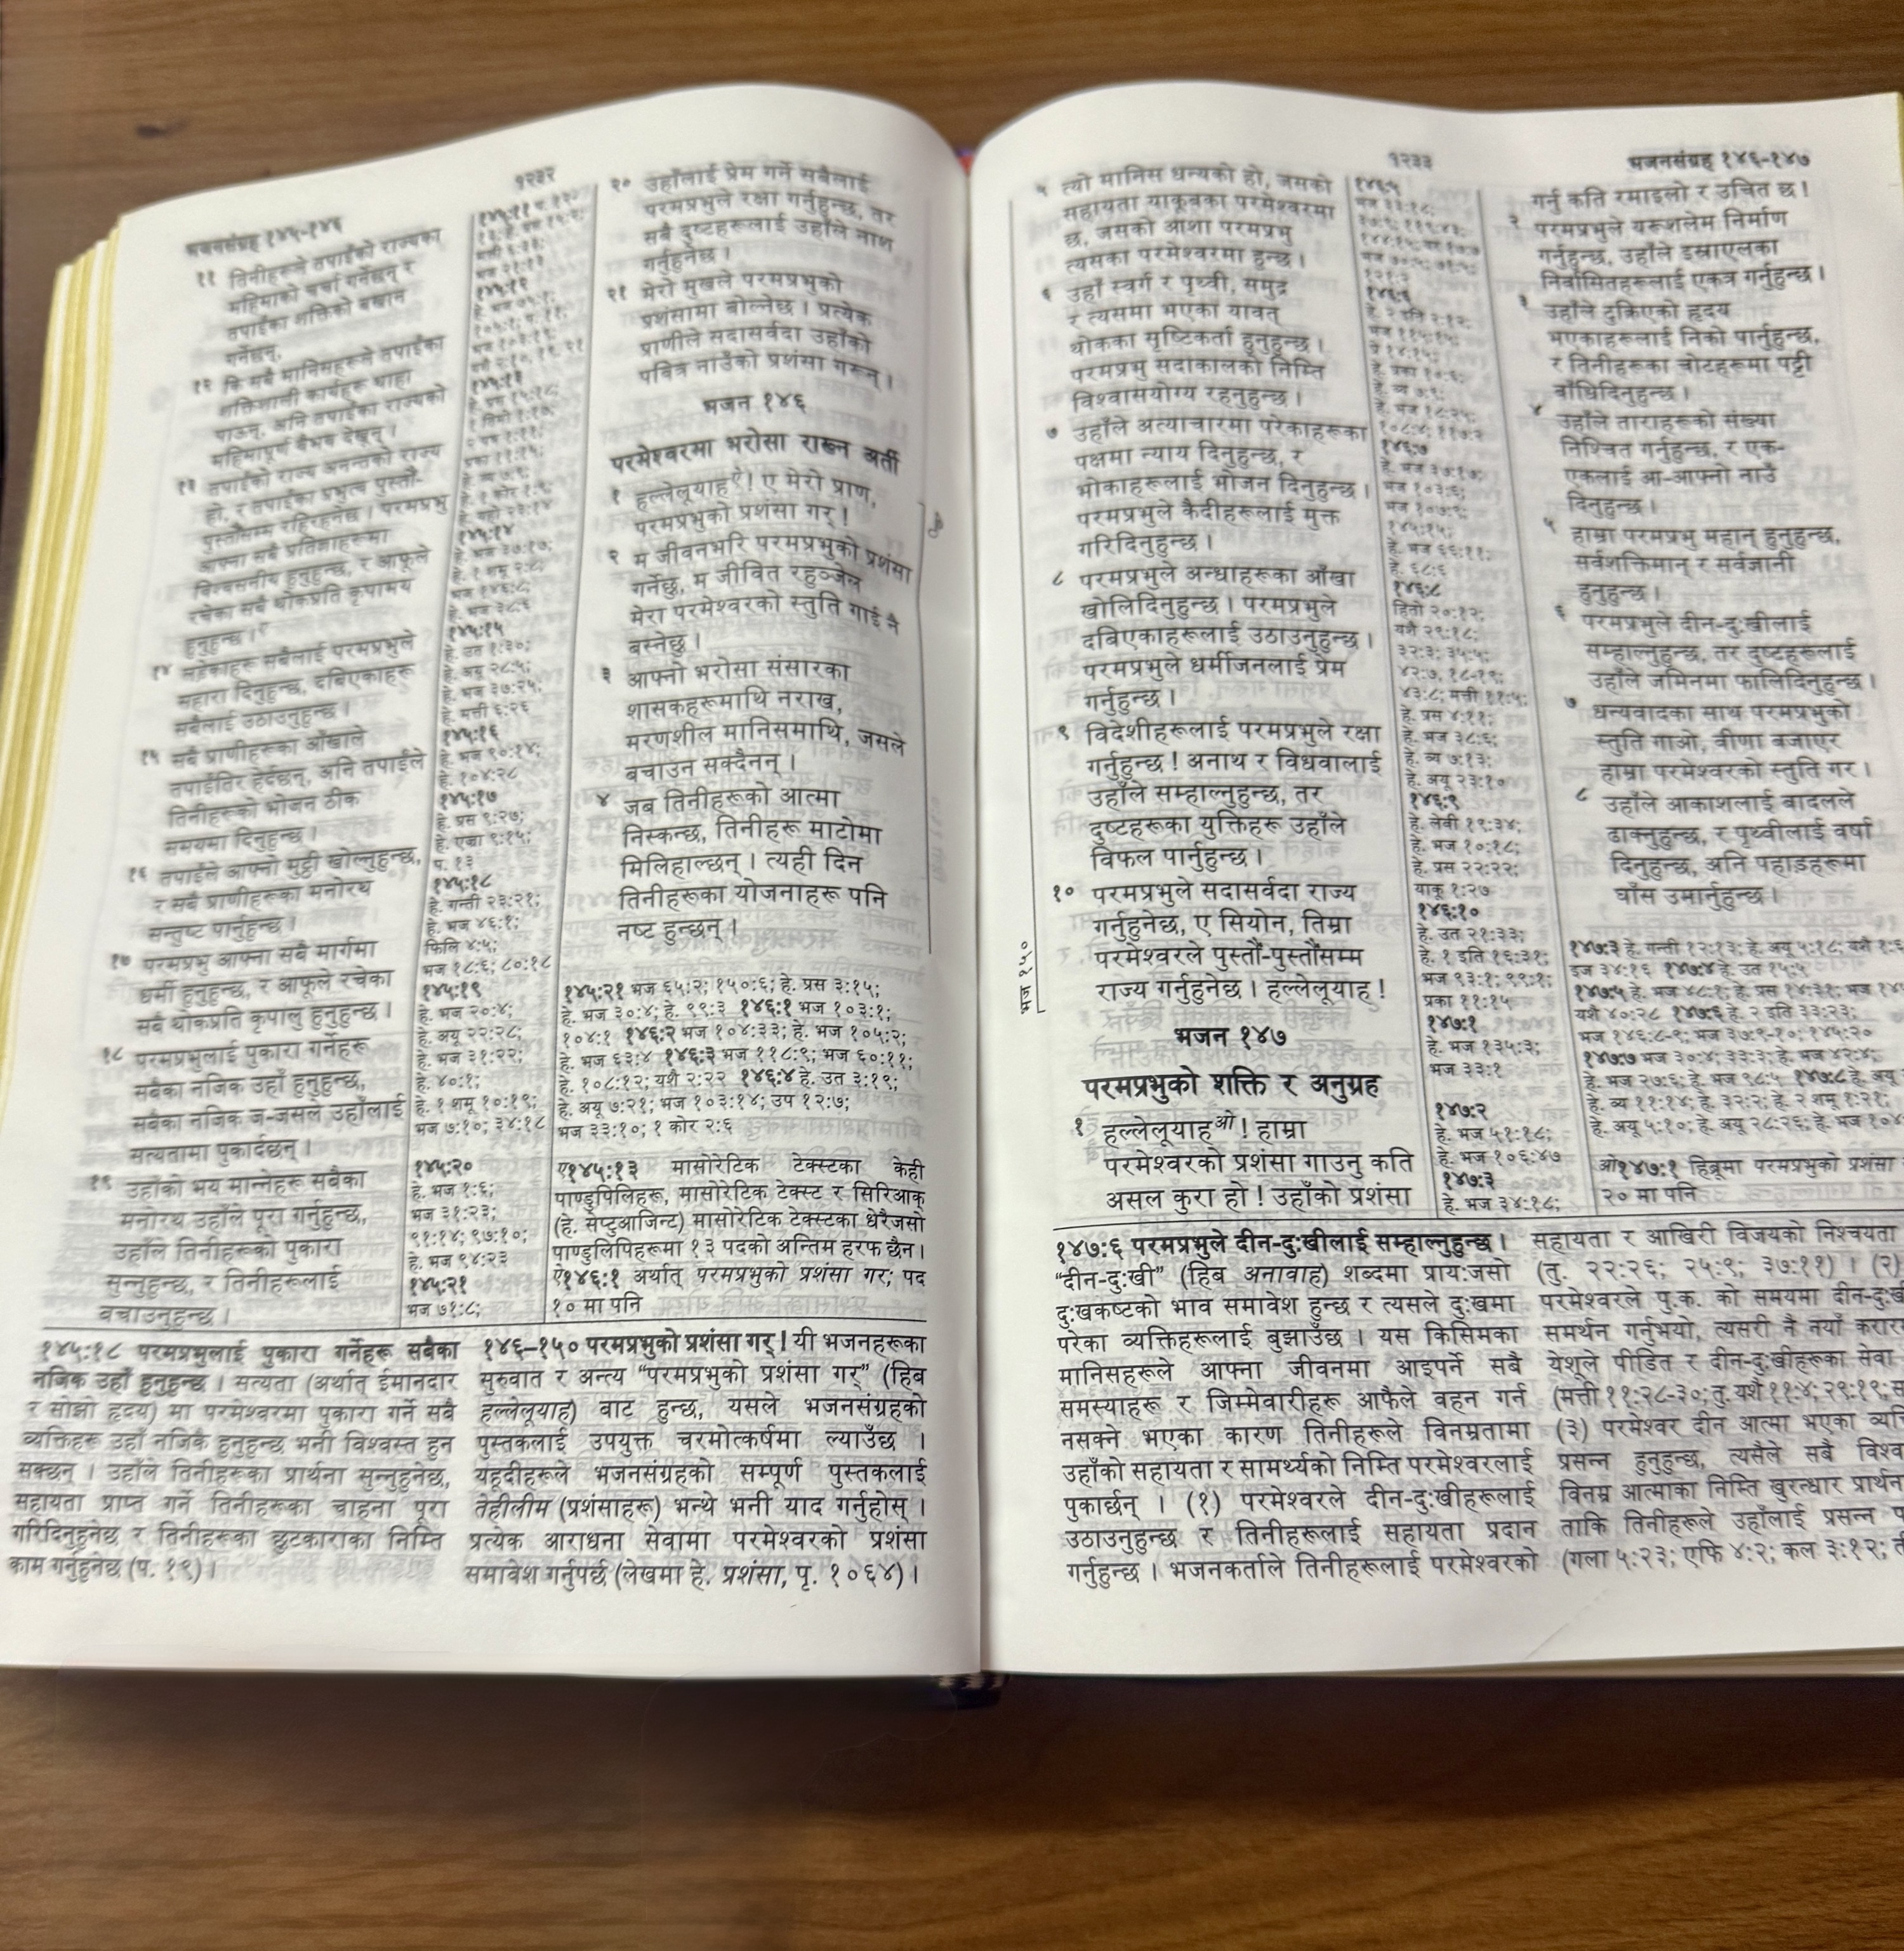 १२३२
भजनसंग्रह १४५-१४६
११ तिनीहरूले तपाईंको राज्यका
महिमाको चर्चा गर्नेछन् र
तपाईंका शक्तिको बखान
गर्नेछन्,
१२ कि सबै मानिसहरूले तपाईंका
शक्तिशाली कार्यहरू थाहा
पाऊन्, अनि तपाईंका राज्यको
महिमापूर्ण वैभव देखून्।
१३ तपाईंको राज्य अनन्तको राज्य
हो, र तपाईंका प्रभुत्व पुस्तौं-
पुस्तौंसम्म रहिरहनेछ। परमप्रभु
आफ्ना सबै प्रतिज्ञाहरूमा
विश्वसनीय हुनुहुन्छ, र आफूले
रचेका सबै थोकप्रति कृपामय
हुनुहुन्छ।ए
१४ लड्नेहरू सबैलाई परमप्रभुले
सहारा दिनुहुन्छ, दबिएकाहरू
सबैलाई उठाउनुहुन्छ।
१५ सबै प्राणीहरूका आँखाले
तपाईंतिर हेर्दछन्, अनि तपाईंले
तिनीहरूको भोजन ठीक
समयमा दिनुहुन्छ।
१६ तपाईंले आफ्नो मुट्ठी खोल्नुहुन्छ,
र सबै प्राणीहरूका मनोरथ
सन्तुष्ट पार्नुहुन्छ।
१७ परमप्रभु आफ्ना सबै मार्गमा
धर्मी हुनुहुन्छ, र आफूले रचेका
सबै थोकप्रति कृपालु हुनुहुन्छ।
१८ परमप्रभुलाई पुकारा गर्नेहरू
सबैका नजिक उहाँ हुनुहुन्छ,
सबैका नजिक ज-जसले उहाँलाई
सत्यतामा पुकार्दछन्।
१९ उहाँको भय मान्नेहरू सबैका
मनोरथ उहाँले पूरा गर्नुहुन्छ,
उहाँले तिनीहरूको पुकारा
सुन्नुहुन्छ, र तिनीहरूलाई
बचाउनुहुन्छ।
१४५:१४
हे. भज ३७:१७;
हे. १ शमू २:८;
भज १४६:८;
हे. भज ३८:६
१४५:१५
हे. उत १:३०;
हे. अयू २८:५;
हे. भज ३७:२५;
हे. मत्ती ६:२६
१४५:१६
हे. भज ९०:१४;
हे. १०४:२८
१४५:१७
हे. प्रस ९:२७;
हे. एज्रा ९:१५;
प. १३
१४५:१८
हे. गन्ती २३:२१;
हे. भज ४६:१;
फिलि ४:५;
भज १८:६; ८०:१८
१४५:१९
हे. भज २०:४;
हे. अयू २२:२८;
हे. भज ३१:२२;
हे. ४०:१;
हे. १ शमू १०:१९;
भज ७:१०; ३४:१८
१४५:२०
हे. भज १:६;
भज ३१:२३;
९१:१४; ९७:१०;
हे. भज ९४:२३
१४५:२१
भज ७१:८;
२० उहाँलाई प्रेम गर्ने सबैलाई
परमप्रभुले रक्षा गर्नुहुन्छ, तर
सबै दुष्टहरूलाई उहाँले नाश
गर्नुहुनेछ।
२१ मेरो मुखले परमप्रभुको
प्रशंसामा बोल्नेछ। प्रत्येक
प्राणीले सदासर्वदा उहाँको
पवित्र नाउँको प्रशंसा गरून्।
भजन १४६
परमेश्वरमा भरोसा राख्न अर्ती
१ हल्लेलूयाहऐ! ए मेरो प्राण,
परमप्रभुको प्रशंसा गर्!
२ म जीवनभरि परमप्रभुको प्रशंसा
गर्नेछु, म जीवित रहुञ्जेल
मेरा परमेश्वरको स्तुति गाई नै
बस्नेछु।
३ आफ्नो भरोसा संसारका
शासकहरूमाथि नराख,
मरणशील मानिसमाथि, जसले
बचाउन सक्दैनन्।
४ जब तिनीहरूको आत्मा
निस्कन्छ, तिनीहरू माटोमा
मिलिहाल्छन्। त्यही दिन
तिनीहरूका योजनाहरू पनि
नष्ट हुन्छन्।
१४५:२१ भज ६५:२; १५०:६; हे. प्रस ३:१५;
हे. भज ३०:४; हे. ९९:३ १४६:१ भज १०३:१;
१०४:१ १४६:२ भज १०४:३३; हे. भज १०५:२;
हे. भज ६३:४ १४६:३ भज ११८:९; भज ६०:११;
हे. १०८:१२; यशै २:२२ १४६:४ हे. उत ३:१९;
हे. अयू ७:२१; भज १०३:१४; उप १२:७;
भज ३३:१०; १ कोर २:६
ए१४५:१३ मासोरेटिक टेक्स्टका केही
पाण्डुपिलिहरू, मासोरेटिक टेक्स्ट र सिरिआक्
(हे. सेप्टुआजिन्ट) मासोरेटिक टेक्स्टका धेरैजसो
पाण्डुलिपिहरूमा १३ पदको अन्तिम हरफ छैन।
ऐ१४६:१ अर्थात् परमप्रभुको प्रशंसा गर; पद
१० मा पनि
१४५:१८ परमप्रभुलाई पुकारा गर्नेहरू सबैका
नजिक उहाँ हुनुहुन्छ। सत्यता (अर्थात् ईमानदार
र सोझो हृदय) मा परमेश्वरमा पुकारा गर्ने सबै
व्यक्तिहरू उहाँ नजिकै हुनुहुन्छ भनी विश्वस्त हुन
सक्छन्। उहाँले तिनीहरूका प्रार्थना सुन्नुहुनेछ,
सहायता प्राप्त गर्ने तिनीहरूका चाहना पूरा
गरिदिनुहुनेछ र तिनीहरूका छुटकाराका निम्ति
काम गर्नुहुनेछ (प. १९)।
१४६-१५० परमप्रभुको प्रशंसा गर्! यी भजनहरूका
सुरुवात र अन्त्य “परमप्रभुको प्रशंसा गर्” (हिब
हल्लेलूयाह) बाट हुन्छ, यसले भजनसंग्रहको
पुस्तकलाई उपयुक्त चरमोत्कर्षमा ल्याउँछ।
यहूदीहरूले भजनसंग्रहको सम्पूर्ण पुस्तकलाई
तेहीलीम (प्रशंसाहरू) भन्थे भनी याद गर्नुहोस्।
प्रत्येक आराधना सेवामा परमेश्वरको प्रशंसा
समावेश गर्नुपर्छ (लेखमा हे. प्रशंसा, पृ. १०६४)।
१२३३
भजनसंग्रह १४६-१४७
५ त्यो मानिस धन्यको हो, जसको
सहायता याकूबका परमेश्वरमा
छ, जसको आशा परमप्रभु
त्यसका परमेश्वरमा हुन्छ।
६ उहाँ स्वर्ग र पृथ्वी, समुद्र
र त्यसमा भएका यावत्
थोकका सृष्टिकर्ता हुनुहुन्छ।
परमप्रभु सदाकालको निम्ति
विश्वासयोग्य रहनुहुन्छ।
७ उहाँले अत्याचारमा परेकाहरूका
पक्षमा न्याय दिनुहुन्छ, र
भोकाहरूलाई भोजन दिनुहुन्छ।
परमप्रभुले कैदीहरूलाई मुक्त
गरिदिनुहुन्छ।
८ परमप्रभुले अन्धाहरूका आँखा
खोलिदिनुहुन्छ। परमप्रभुले
दबिएकाहरूलाई उठाउनुहुन्छ।
परमप्रभुले धर्मीजनलाई प्रेम
गर्नुहुन्छ।
९ विदेशीहरूलाई परमप्रभुले रक्षा
गर्नुहुन्छ! अनाथ र विधवालाई
उहाँले सम्हाल्नुहुन्छ, तर
दुष्टहरूका युक्तिहरू उहाँले
विफल पार्नुहुन्छ।
१० परमप्रभुले सदासर्वदा राज्य
गर्नुहुनेछ, ए सियोन, तिम्रा
परमेश्वरले पुस्तौं-पुस्तौंसम्म
राज्य गर्नुहुनेछ। हल्लेलूयाह!
भज १५०
भजन १४७
परमप्रभुको शक्ति र अनुग्रह
१ हल्लेलूयाहओ! हाम्रा
परमेश्वरको प्रशंसा गाउनु कति
असल कुरा हो! उहाँको प्रशंसा
१४६:७
हे. भज ३७:१७;
भज १०३:६;
भज १०७:९;
१४५:१५;
हे. भज ६६:११;
हे. ६८:६
१४६:८
हितो २०:१२;
यशै २९:१८;
३२:३; ३५:५;
४२:७, १८-१९;
४३:८; मत्ती ११:५;
हे. प्रस ४:११;
हे. भज ३८:६;
हे. व्य ७:१३;
हे. अयू २३:१०
१४६:९
हे. लेवी १९:३४;
हे. भज १०:१८;
हे. प्रस २२:२२;
याकू १:२७
१४६:१०
हे. उत २१:३३;
हे. १ इति १६:३१;
भज ९३:१; ९९:१;
प्रका ११:१५
१४७:१
हे. भज १३५:३;
भज ३३:१
१४७:२
हे. भज ५१:१८;
हे. भज १०६:४७
१४७:३
हे. भज ३४:१८;
गर्नु कति रमाइलो र उचित छ।
२ परमप्रभुले यरूशलेम निर्माण
गर्नुहुन्छ, उहाँले इस्राएलका
निर्वासितहरूलाई एकत्र गर्नुहुन्छ।
३ उहाँले टुक्रिएको हृदय
भएकाहरूलाई निको पार्नुहुन्छ,
र तिनीहरूका चोटहरूमा पट्टी
बाँधिदिनुहुन्छ।
४ उहाँले ताराहरूको संख्या
निश्चित गर्नुहुन्छ, र एक-
एकलाई आ-आफ्नो नाउँ
दिनुहुन्छ।
५ हाम्रा परमप्रभु महान् हुनुहुन्छ,
सर्वशक्तिमान् र सर्वज्ञानी
हुनुहुन्छ।
६ परमप्रभुले दीन-दुःखीलाई
सम्हाल्नुहुन्छ, तर दुष्टहरूलाई
उहाँले जमिनमा फालिदिनुहुन्छ।
७ धन्यवादका साथ परमप्रभुको
स्तुति गाओ, वीणा बजाएर
हाम्रा परमेश्वरको स्तुति गर।
८ उहाँले आकाशलाई बादलले
ढाक्नुहुन्छ, र पृथ्वीलाई वर्षा
दिनुहुन्छ, अनि पहाडहरूमा
घाँस उमार्नुहुन्छ।
१४७:३ हे. गन्ती १२:१३; हे. अयू ५:१८; यशै १:६
इज ३४:१६ १४७:४ हे. उत १५:५
१४७:५ हे. भज ४८:१; हे. प्रस १४:३१; भज १४
यशै ४०:२८ १४७:६ हे. २ इति ३३:२३;
भज १४६:८-९; भज ३७:९-१०; १४५:२०
१४७:७ भज ३०:४; ३३:३; हे. भज ४२:४;
हे. भज २७:६; हे. भज ९८:५ १४७:८ हे. अयू
हे. व्य ११:१४; हे. ३२:२; हे. २ शमू १:२१;
हे. अयू ५:१०; हे. अयू २८:२६; हे. भज १०४
ओ१४७:१ हिब्रूमा परमप्रभुको प्रशंसा
२० मा पनि
१४७:६ परमप्रभुले दीन-दुःखीलाई सम्हाल्नुहुन्छ।
“दीन-दुःखी” (हिब अनावाह) शब्दमा प्रायःजसो
दुःखकष्टको भाव समावेश हुन्छ र त्यसले दुःखमा
परेका व्यक्तिहरूलाई बुझाउँछ। यस किसिमका
मानिसहरूले आफ्ना जीवनमा आइपर्ने सबै
समस्याहरू र जिम्मेवारीहरू आफैले वहन गर्न
नसक्ने भएका कारण तिनीहरूले विनम्रतामा
उहाँको सहायता र सामर्थ्यको निम्ति परमेश्वरलाई
पुकार्छन्। (१) परमेश्वरले दीन-दुःखीहरूलाई
उठाउनुहुन्छ र तिनीहरूलाई सहायता प्रदान
गर्नुहुन्छ। भजनकर्ताले तिनीहरूलाई परमेश्वरको
सहायता र आखिरी विजयको निश्चयता
(तु. २२:२६; २५:९; ३७:११)। (२)
परमेश्वरले पु.क. को समयमा दीन-दुःख
समर्थन गर्नुभयो, त्यसरी नै नयाँ करार
येशूले पीडित र दीन-दुःखीहरूका सेवा
(मत्ती ११:२८-३०; तु. यशै ११:४; २९:१९;
(३) परमेश्वर दीन आत्मा भएका व्यक्ति
प्रसन्न हुनुहुन्छ, त्यसैले सबै विश्व
विनम्र आत्माका निम्ति खुरन्धार प्रार्थन
ताकि तिनीहरूले उहाँलाई प्रसन्न
(गला ५:२३; एफि ४:२; कल ३:१२;